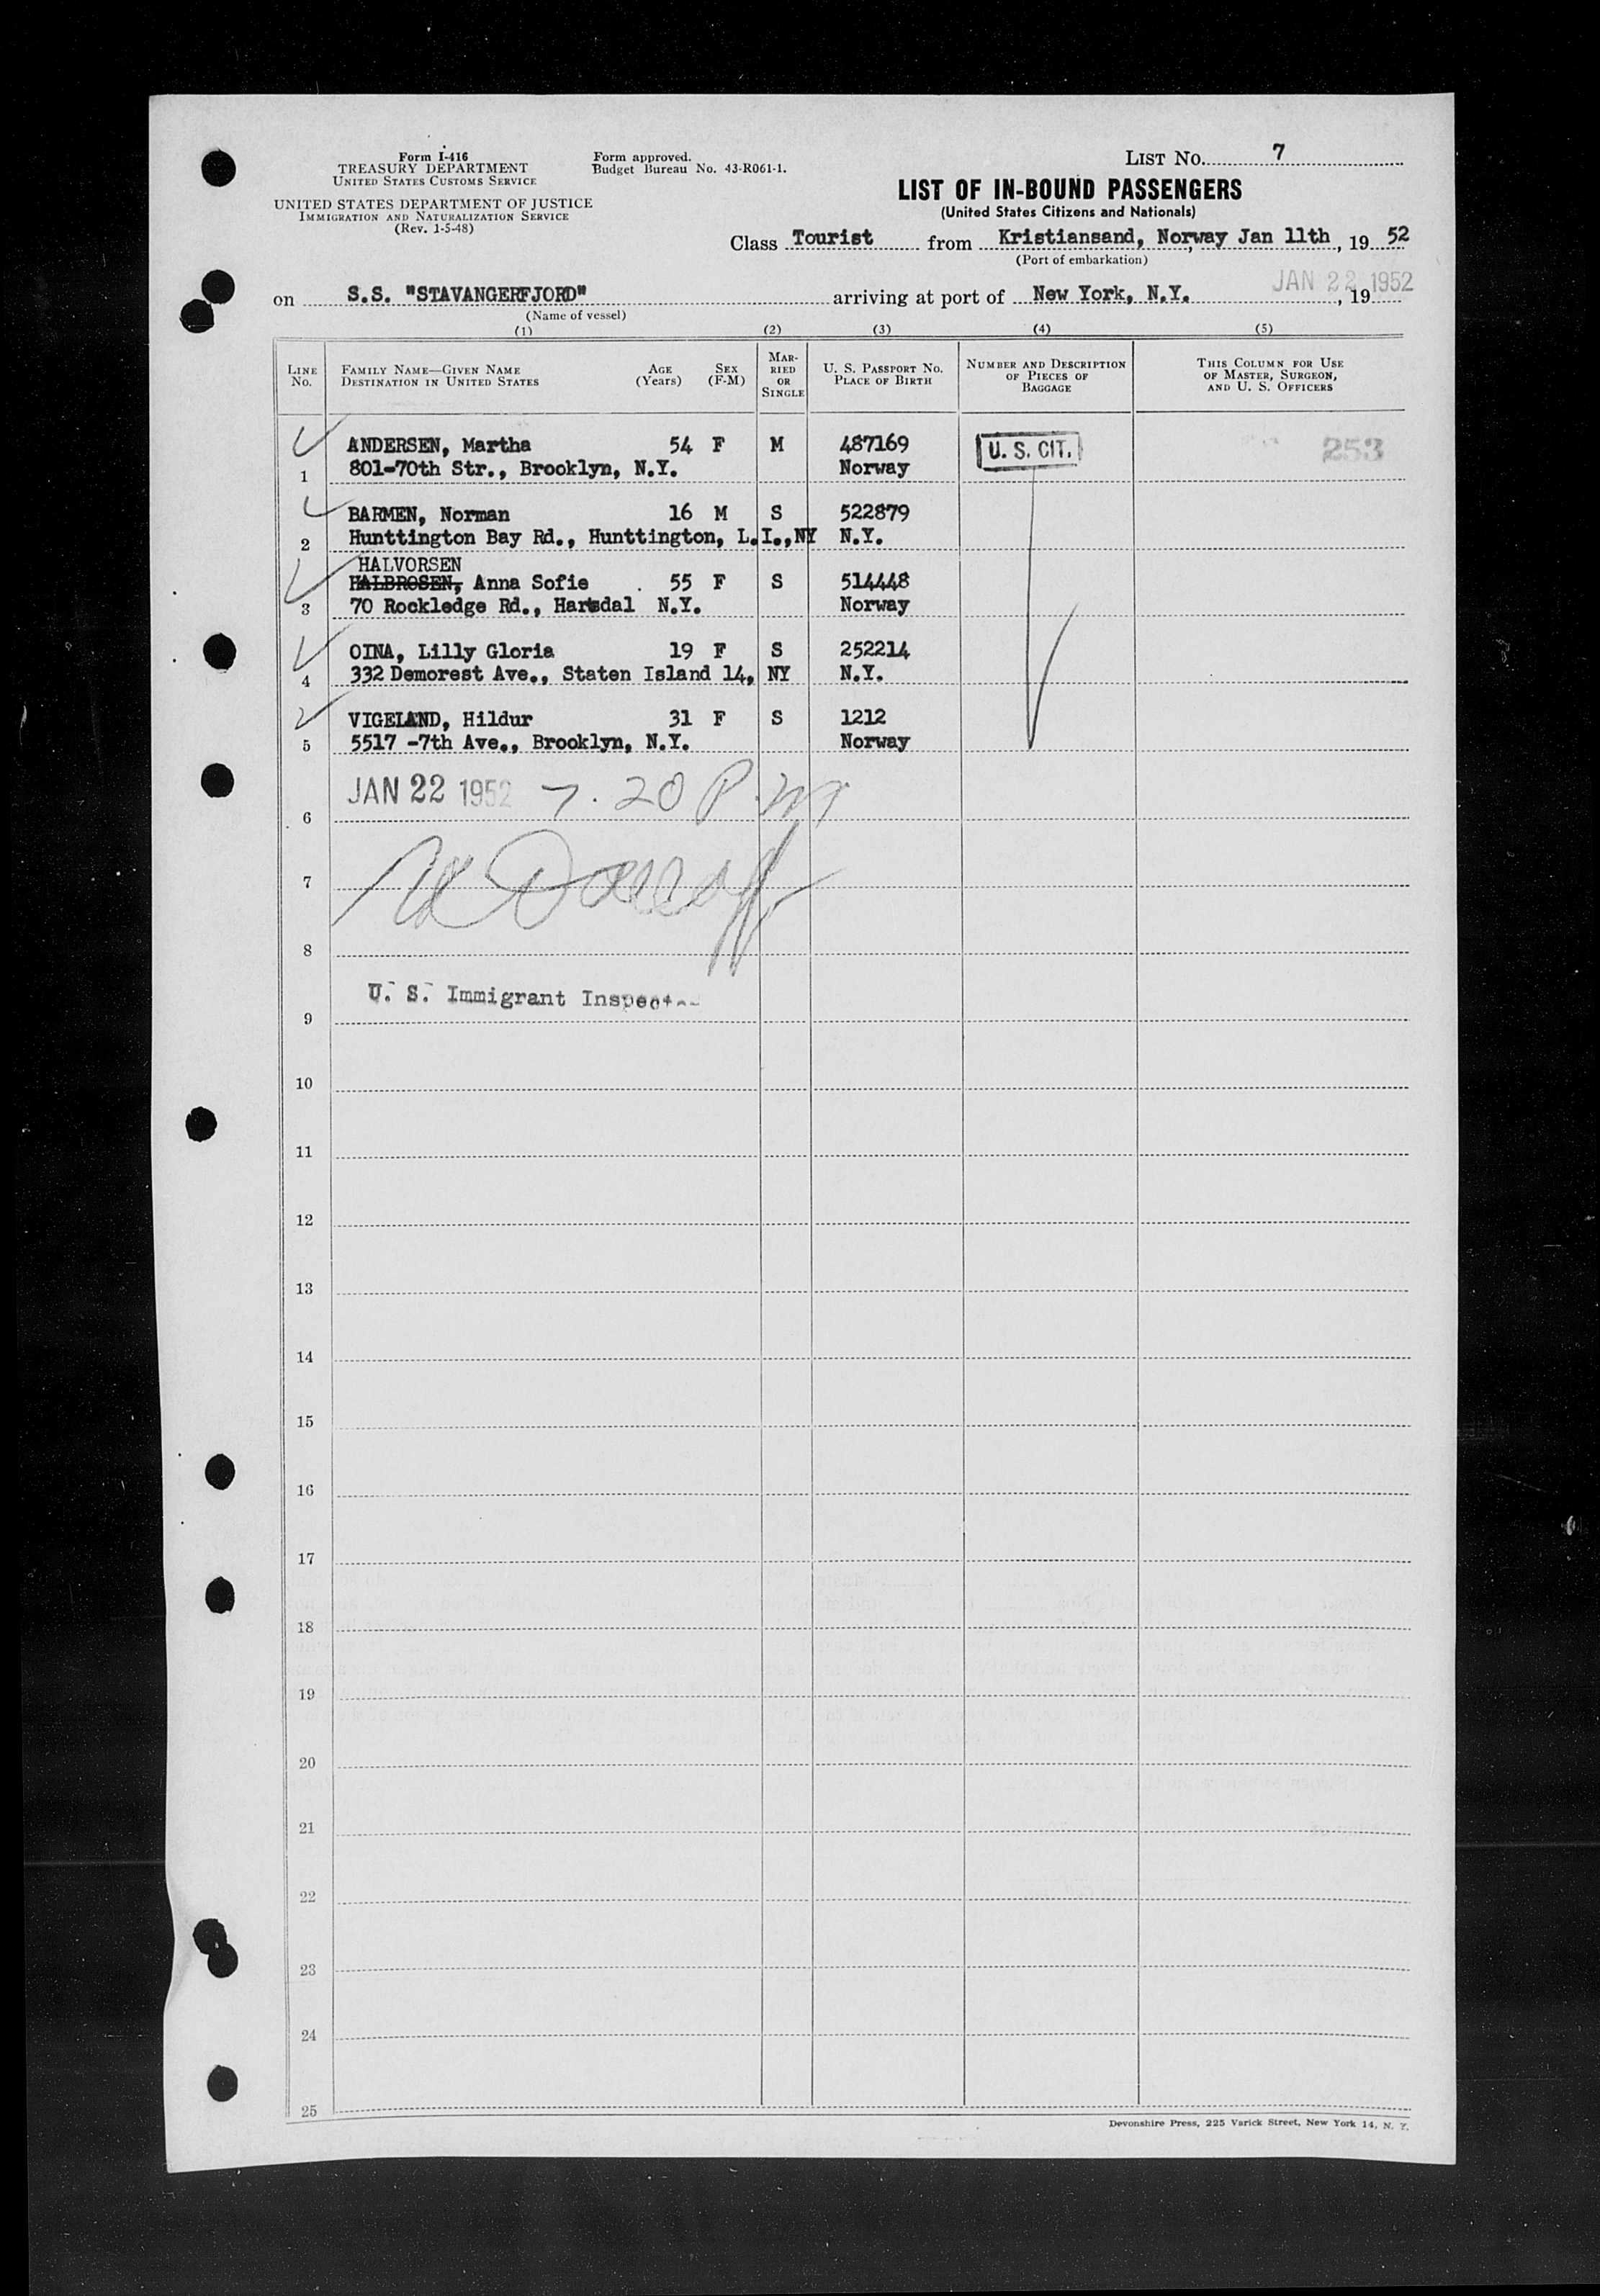 Form I-416
TREASURY DEPARTMENT
UNITED STATES CUSTOMS SERVICE
UNITED STATES DEPARTMENT OF JUSTICE
IMMIGRATION AND NATURALIZATION SERVICE
(Rev. 1-5-48)
Form approved.
Budget Bureau No. 43-R061-1.
LIST NO. 7
LIST OF IN-BOUND PASSENGERS
(United States Citizens and Nationals)
Class Tourist from Kristiansand, Norway Jan 11th, 19 52
(Port of embarkation)
JAN 22 1952
on S.S. "STAVANGERFJORD" arriving at port of New York, N.Y. , 19
(Name of vessel)
(1) (2) (3) (4) (5)
LINE NO.
FAMILY NAME—GIVEN NAME
DESTINATION IN UNITED STATES
AGE
(Years)
SEX
(F-M)
MAR-
RIED
OR
SINGLE
U. S. PASSPORT NO.
PLACE OF BIRTH
NUMBER AND DESCRIPTION
OF PIECES OF
BAGGAGE
THIS COLUMN FOR USE
OF MASTER, SURGEON,
AND U. S. OFFICERS
ANDERSEN, Martha 54 F M 487169 U. S. CIT. 253
1 801-70th Str., Brooklyn, N.Y. Norway
BARMEN, Norman 16 M S 522879
2 Hunttington Bay Rd., Hunttington, L.I.,NY N.Y.
HALVORSEN
HALBROSEN, Anna Sofie 55 F S 514448
3 70 Rockledge Rd., Hartsdal N.Y. Norway
OINA, Lilly Gloria 19 F S 252214
4 332 Demorest Ave., Staten Island 14, NY N.Y.
VIGELAND, Hildur 31 F S 1212
5 5517 -7th Ave., Brooklyn, N.Y. Norway
JAN 22 1952 7.20 P.M
6
7
8
U. S. Immigrant Inspector
9
10
11
12
13
14
15
16
17
18
19
20
21
22
23
24
25
Devonshire Press, 225 Varick Street, New York 14, N. Y.